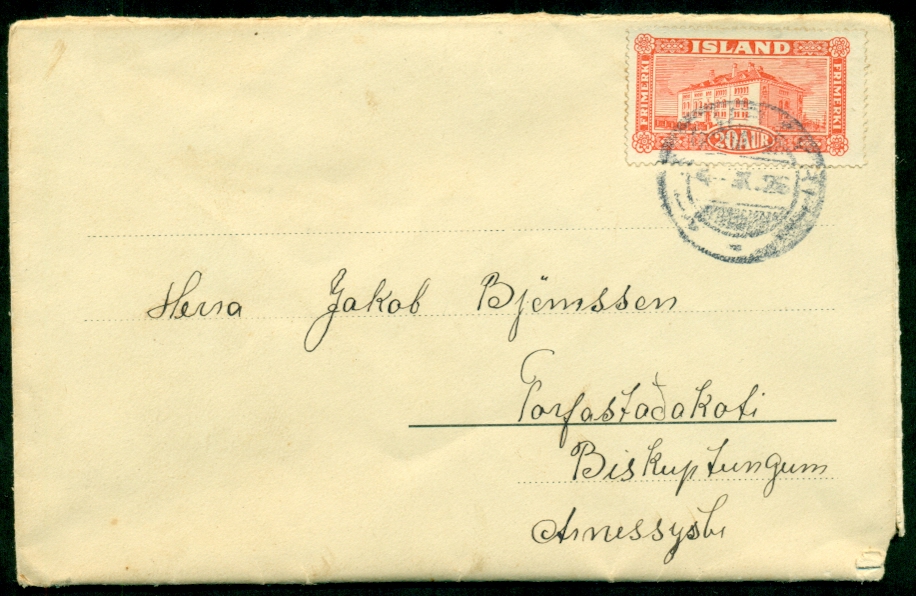 ISLAND
FRIMERKI FRIMERKI
20 AUR
Herra Jakob Björnssen
Torfastaðakoti
Biskuptungum
Arnessyslu